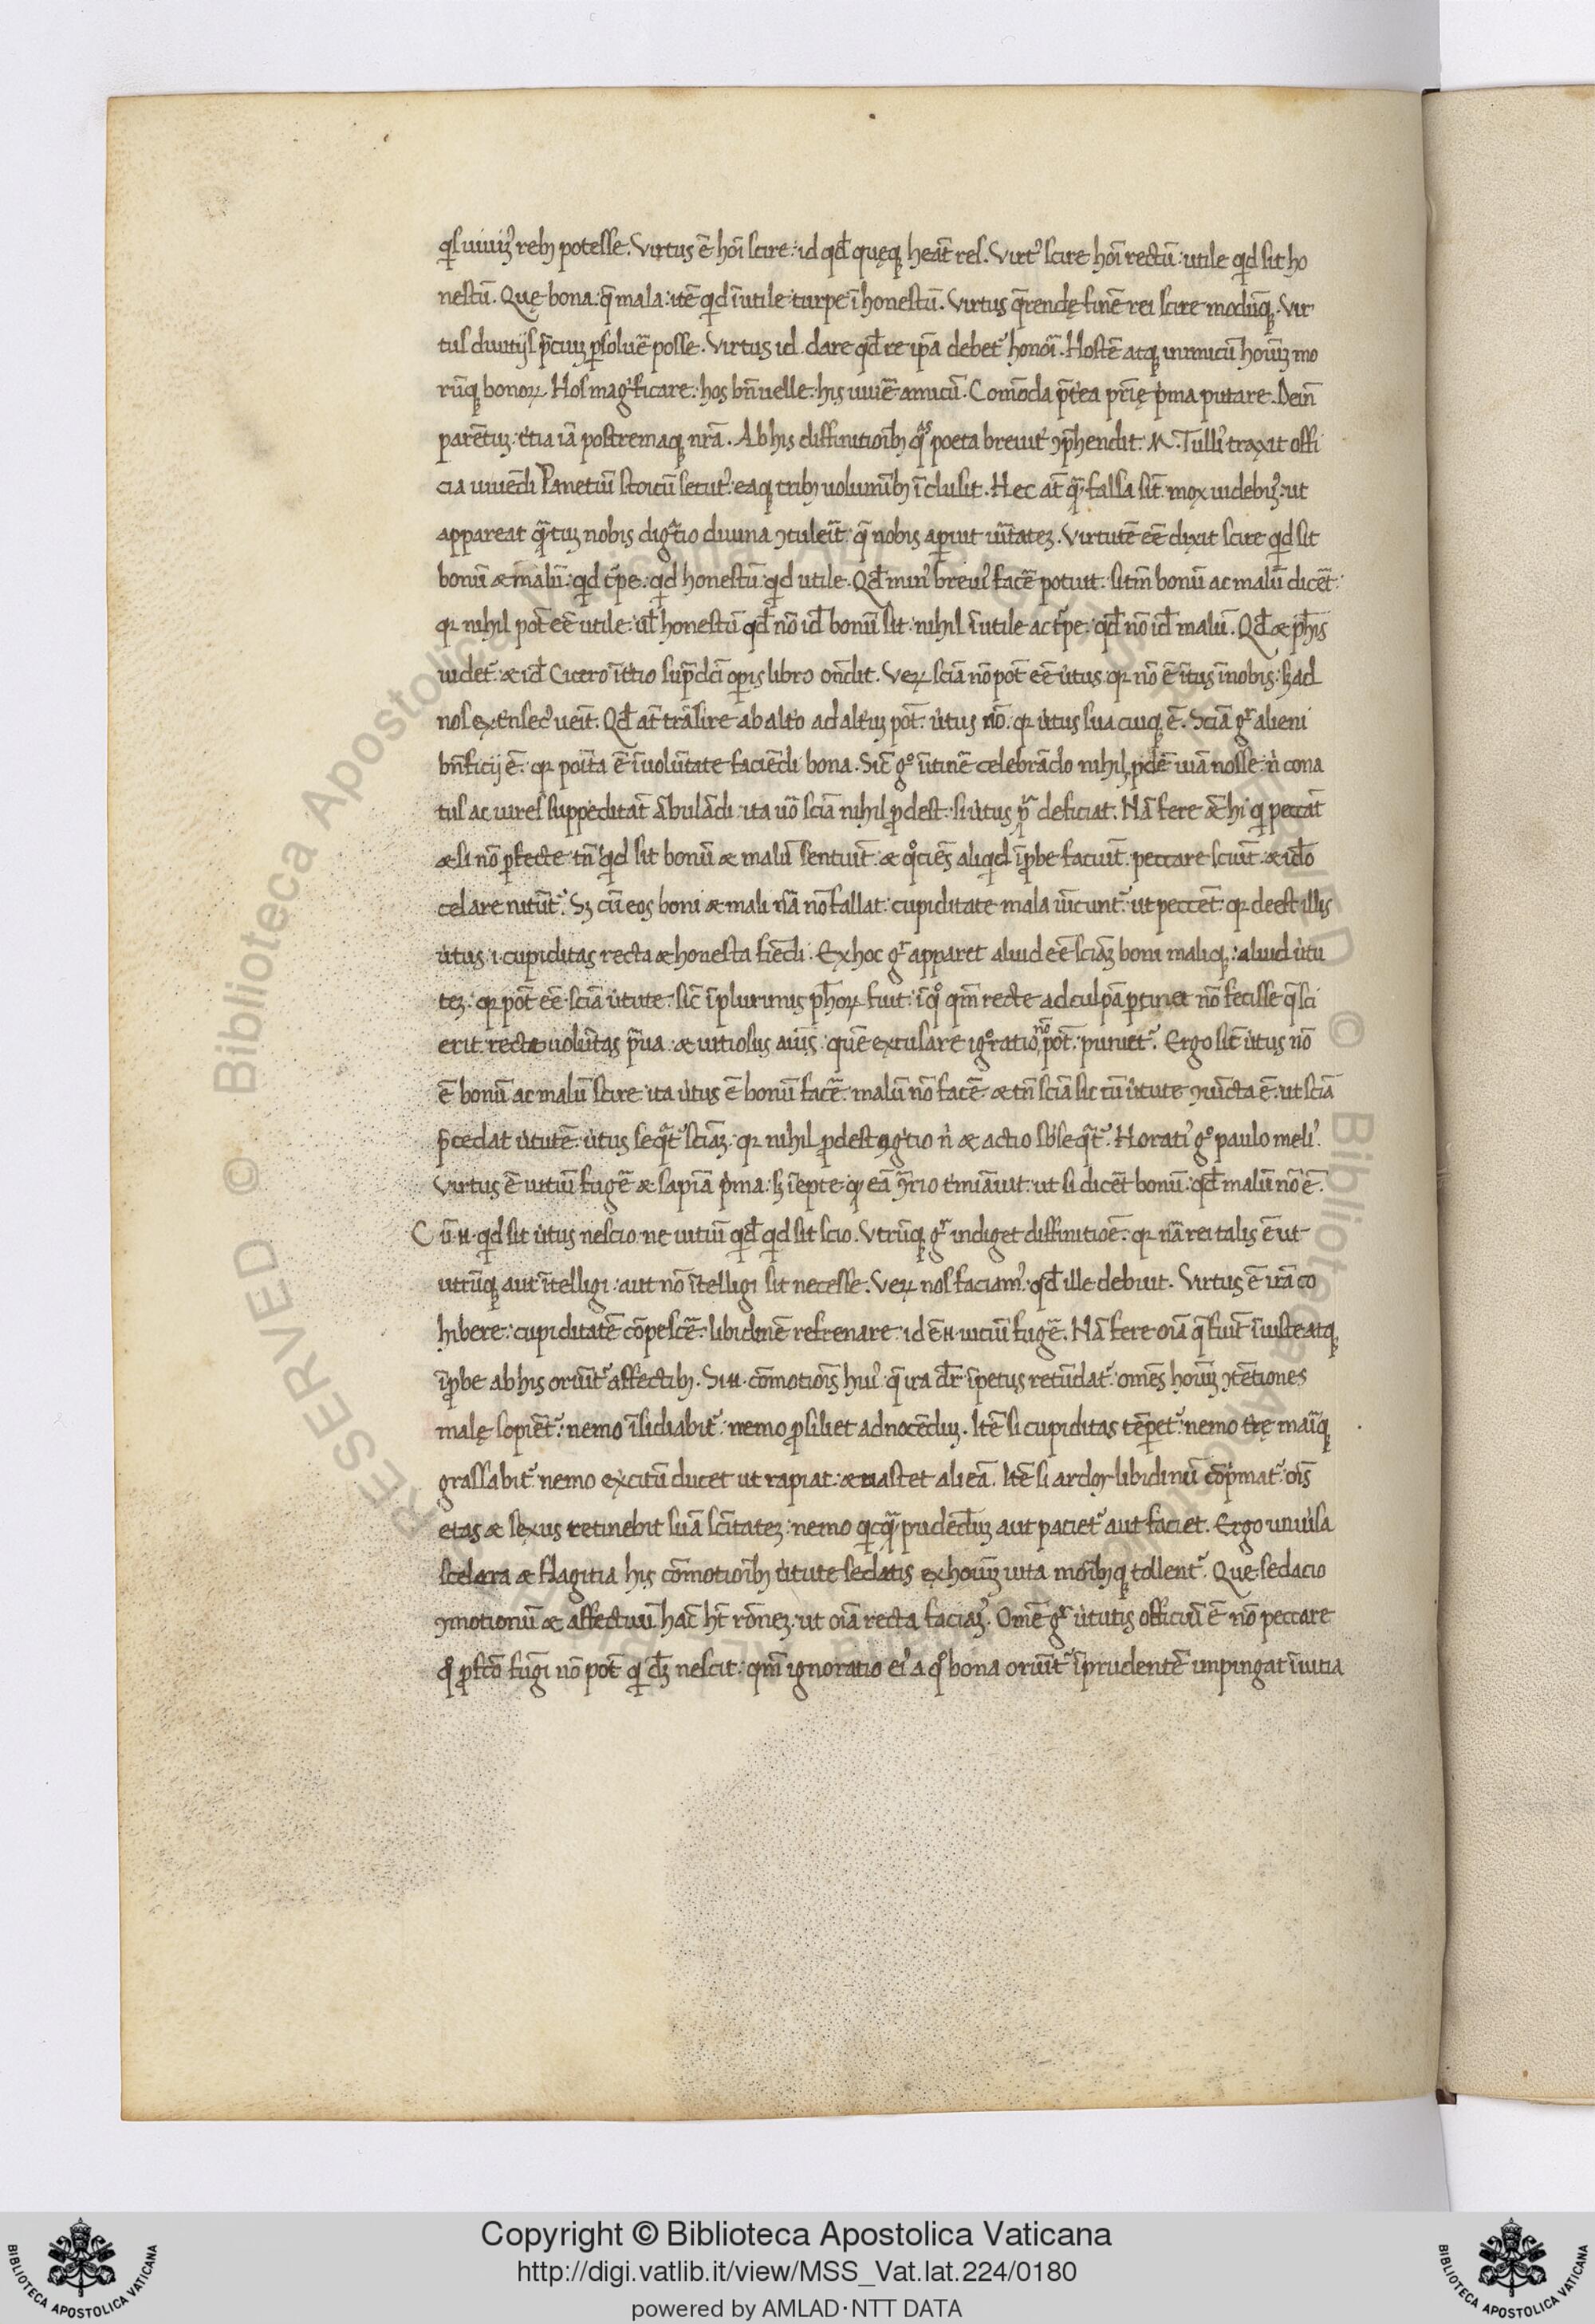 qͥs uiuim⁹ reb; potesse. Virtus ē hōi scire: id qđ quęq; heāt res. Virt⁹ scire hōi rectū: utile qͥd sit ho
nestū. Quę bona: q̄ mala: itē qͥd īutile turpe īhonestū. Virtus q̄rendę finē rei scire modūq;. Vir
tus diuitijs p̄ciuꝫ ꝑsoluē posse. Virtus id dare qđ re ip̄a debet᷑ honōi. Hostē atq; inimicū hoīuꝫ mo
rūq; bonoꝝ. Hos magͥficare: hos bn̄ uelle: his uiuē amicū. Comōda p̄t̾ea pr̄ię pͥma putare. Dein̄
parētuꝫ: t̾tia iā postremaq; nr̄a. Ab his diffinitiōib; qͣs poeta breuit̾ ꝯp̄hendit. M. Tulli⁹ traxit offi
cia uiuēdi Panetiū stoicū secut⁹: eaq; trib; uolumīb; īclusit. Hec at̄ qͣ falsa sīt mox uidebim⁹: ut
appareat qͣtuꝫ nobis digͣtio diuina ꝯtulerīt: q̄ nobis aꝑuit ūitatez. Virtutē eē dixit scire qͥd sit
bonū & malū: qͥd t̾pe: qͥd honestū: qͥd utile. Qđ min⁹ breui⁹ facē potuit: si tm̄ bonū ac malū dicēt:
qꝛ nihil pōt eē utile: ul̄ honestū qđ nō id̄ bonū sit: nihil īutile ac t̾pe: qđ nō id̄ malū. Qđ & ph̄is
uidet᷑: & id̄ Cicero ī t̾tio sup̄dc̄i oꝑis libro ōndit. Veꝝ scīa nō pōt eē ùtus: qꝛ nō ē ītus ī nobis: sꝫ ad
nos ext̾nsec⁹ ueīt. Qđ at̄ trāsire ab alt̾o ad alt̾uꝫ pōt: ùtus nō ē: qꝛ ùtus sua cuiq; ē. Scīa gͥ alieni
bn̄ficij ē: qꝛ poīta ē ī uolūtate faciēdi bona. Sic̄ gͦ ī itinē celebrādo nihil ꝓdē uiā nosse: ǹ cona
tus ac uires suppeditāt ābulādi: ita uō scīa nihil ꝓdest: si ùtus ꝓpͥa deficiat. Nā fere ā hi qͥ peccāt
& si nō ꝑfecte tn̄ qͥd sit bonū & malū sentiūt: & qͦciēs aliqͥd īꝓbe faciūt: peccare sciūt: & id̄o
celare nitūt᷑. Sꝫ cū eos boni & mali nā nō fallat: cupiditate mala uīcunt᷑: ut peccēt: qꝛ deest illis
ùtus .i. cupiditas recta & honesta fiēdi. Ex hoc gͥ apparet aliud eē sciāꝫ boni maliq;: aliud ùtu
tez: qꝛ pōt eē scīa ùtute: sic̄ ī plurimis ph̄oꝝ fuit: ī qͦ qm̄ recte ad culpā ꝑtinet nō fecisse q̄ sci
erit: recta uolūtas pͣua & uitiosus aīus: quē excusare igͦratio nō pōt: puniet᷑. Ergo sic̄ ùtus nō
ē bonū ac malū scire: ita ùtus ē bonū facē: malū nō facē: & tn̄ scīa sic cū ùtute ꝯiūcta ē: ut scīa
p̄cedat ùtutē: ùtus seqͣt᷑ sciāꝫ: qꝛ nihil ꝓdest cogͥtio n̄ & actio sb̄seqͣt᷑. Horati⁹ gͦ paulo meli⁹.
Virtus ē uitiū fugē & sapīa pͥma: sꝫ īepte qꝛ eā ꝯͣrio t̾miāuit: ut si dicēt bonū: qđ malū nō ē.
Cū .n. qͥd sit ùtus nescio: ne uitiū qđ qͥd sit scio. Vtrūq; gͥ indiget diffinitiōe: qꝛ nā rei talis ē ut
utrūq; aut ītelligi: aut nō ītelligi sit necesse. Veꝝ nos faciam⁹: qđ ille debuit. Virtus ē irā co
hibere: cupiditatē cōpescē: libidinē refrenare: id ē .n. uitiū fugē. Nā fere oīa q̄ fiūt īiuste atq;
īꝓbe ab his oriūt᷑ affectib;. Si .n. cōmotiōis hui⁹ q̄ ira dr̄ īpetus retūdat᷑: omēs hoīuꝫ ꝯtētiones
malę sopiēt᷑: nemo īsidiabit᷑: nemo ꝓsiliet ad nocēduꝫ. Itē si cupiditas tēꝑet᷑: nemo t̾rę maīq;
grassabit᷑: nemo excitū ducet ut rapiat: & uastet alieā. Itē si ardor libidinū cōpͥmat᷑: oīs
etas & sexus retinebit suā scītatez: nemo qͥcqͣ pudēduꝫ aut paciet᷑ aut faciet. Ergo uniu̾sa
scelera & flagitia his cōmotiōib; ùtute sedatis ex hoīuꝫ uita morib;q; tollent᷑. Que sedacio
ꝯmotionū & affectuū hāc h̄t rōnez: ut oīa recta faciaꝫ⁹. Omē gͥ ùtutis officiū ē nō peccare
qͦ ꝓfcō fūgi nō pōt qͥ dꝫ̄ nescit: qm̄ ignoratio ei⁹ a qͦ bona oriūt᷑ īprudentē impingat ī uitia
Copyright © Biblioteca Apostolica Vaticana
http://digi.vatlib.it/view/MSS_Vat.lat.224/0180
powered by AMLAD·NTT DATA